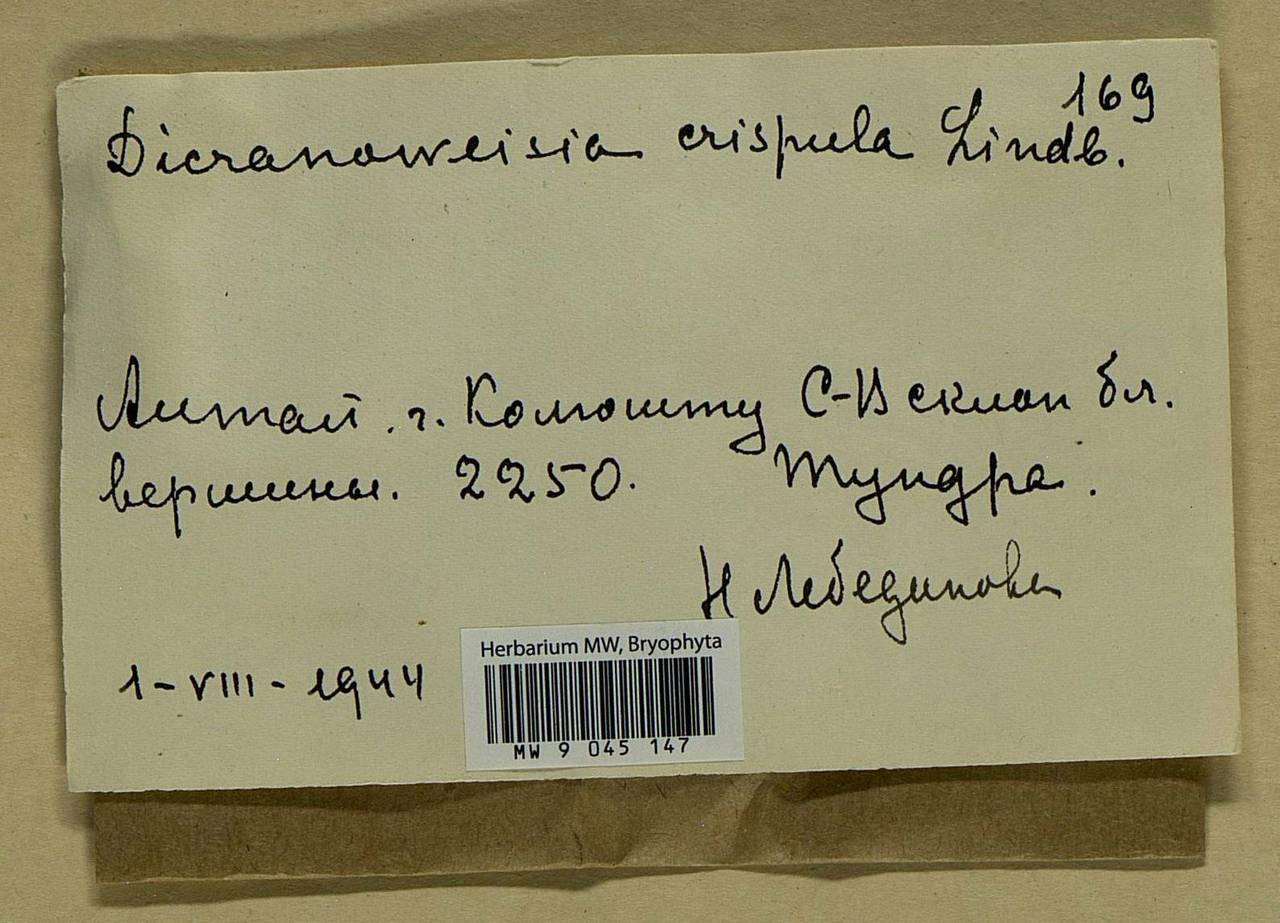 169
Dicranoweisia crispula Lindb.
Алтай. г. Колюшту С-В склон бл.
вершины. 2250. Тундра.
Н Лебединова
1-VIII-1944
Herbarium MW, Bryophyta
MW 9 045 147